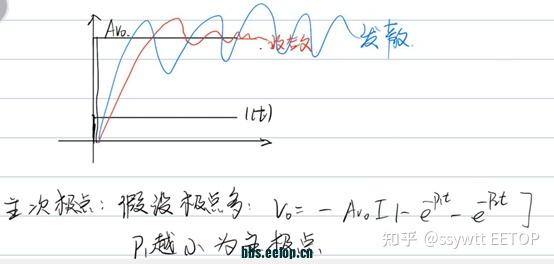 Avo.
收敛
发散
1(t)
主次极点：假设极点多：Vo = - Avo [1 - e^-P₁t - e^-P₂t ]
P₁越小为主极点
知乎 @ssywtt EETOP
bbs.eetop.cn